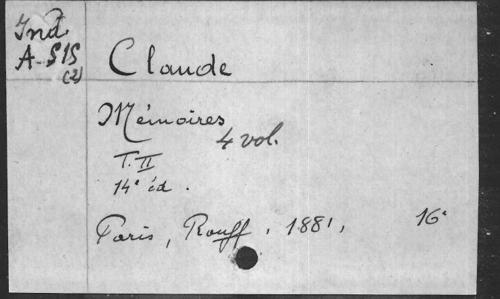 Ind.
A-515
(2)
Claude
Mémoires
4 vol.
T. II
14ᵉ éd.
Paris, Rouff, 1881, 16ᵉ